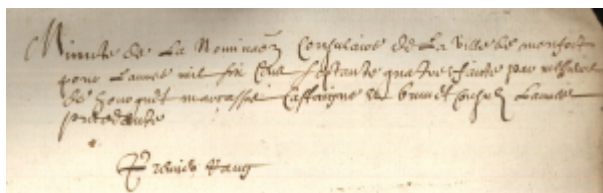 Minute de La Nominaõn Consulaire de La Ville de monfort
pour Lannee mil six Cens septante quatre faite par
de fourquet marcassus Cassaigne et brunet Lannee
precedante
Premier Rang